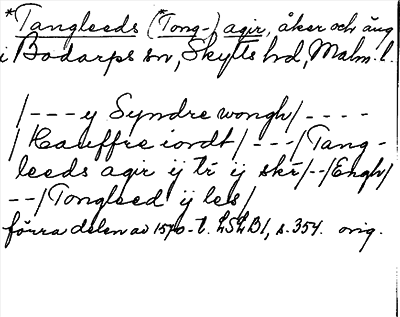 *Tangleeds (*Tong-) agir, åker och äng
i Bodarps sn, Skytts hd, Malm. l.
/---y Syndre wongh/----
/Hauffre iordt/---/Tang-
leeds agir ij tr̄ ij skr̄/--/Engh/
--/Tongleed ij les/
förra delen av 1570-t. LSLB1, s. 354. orig.